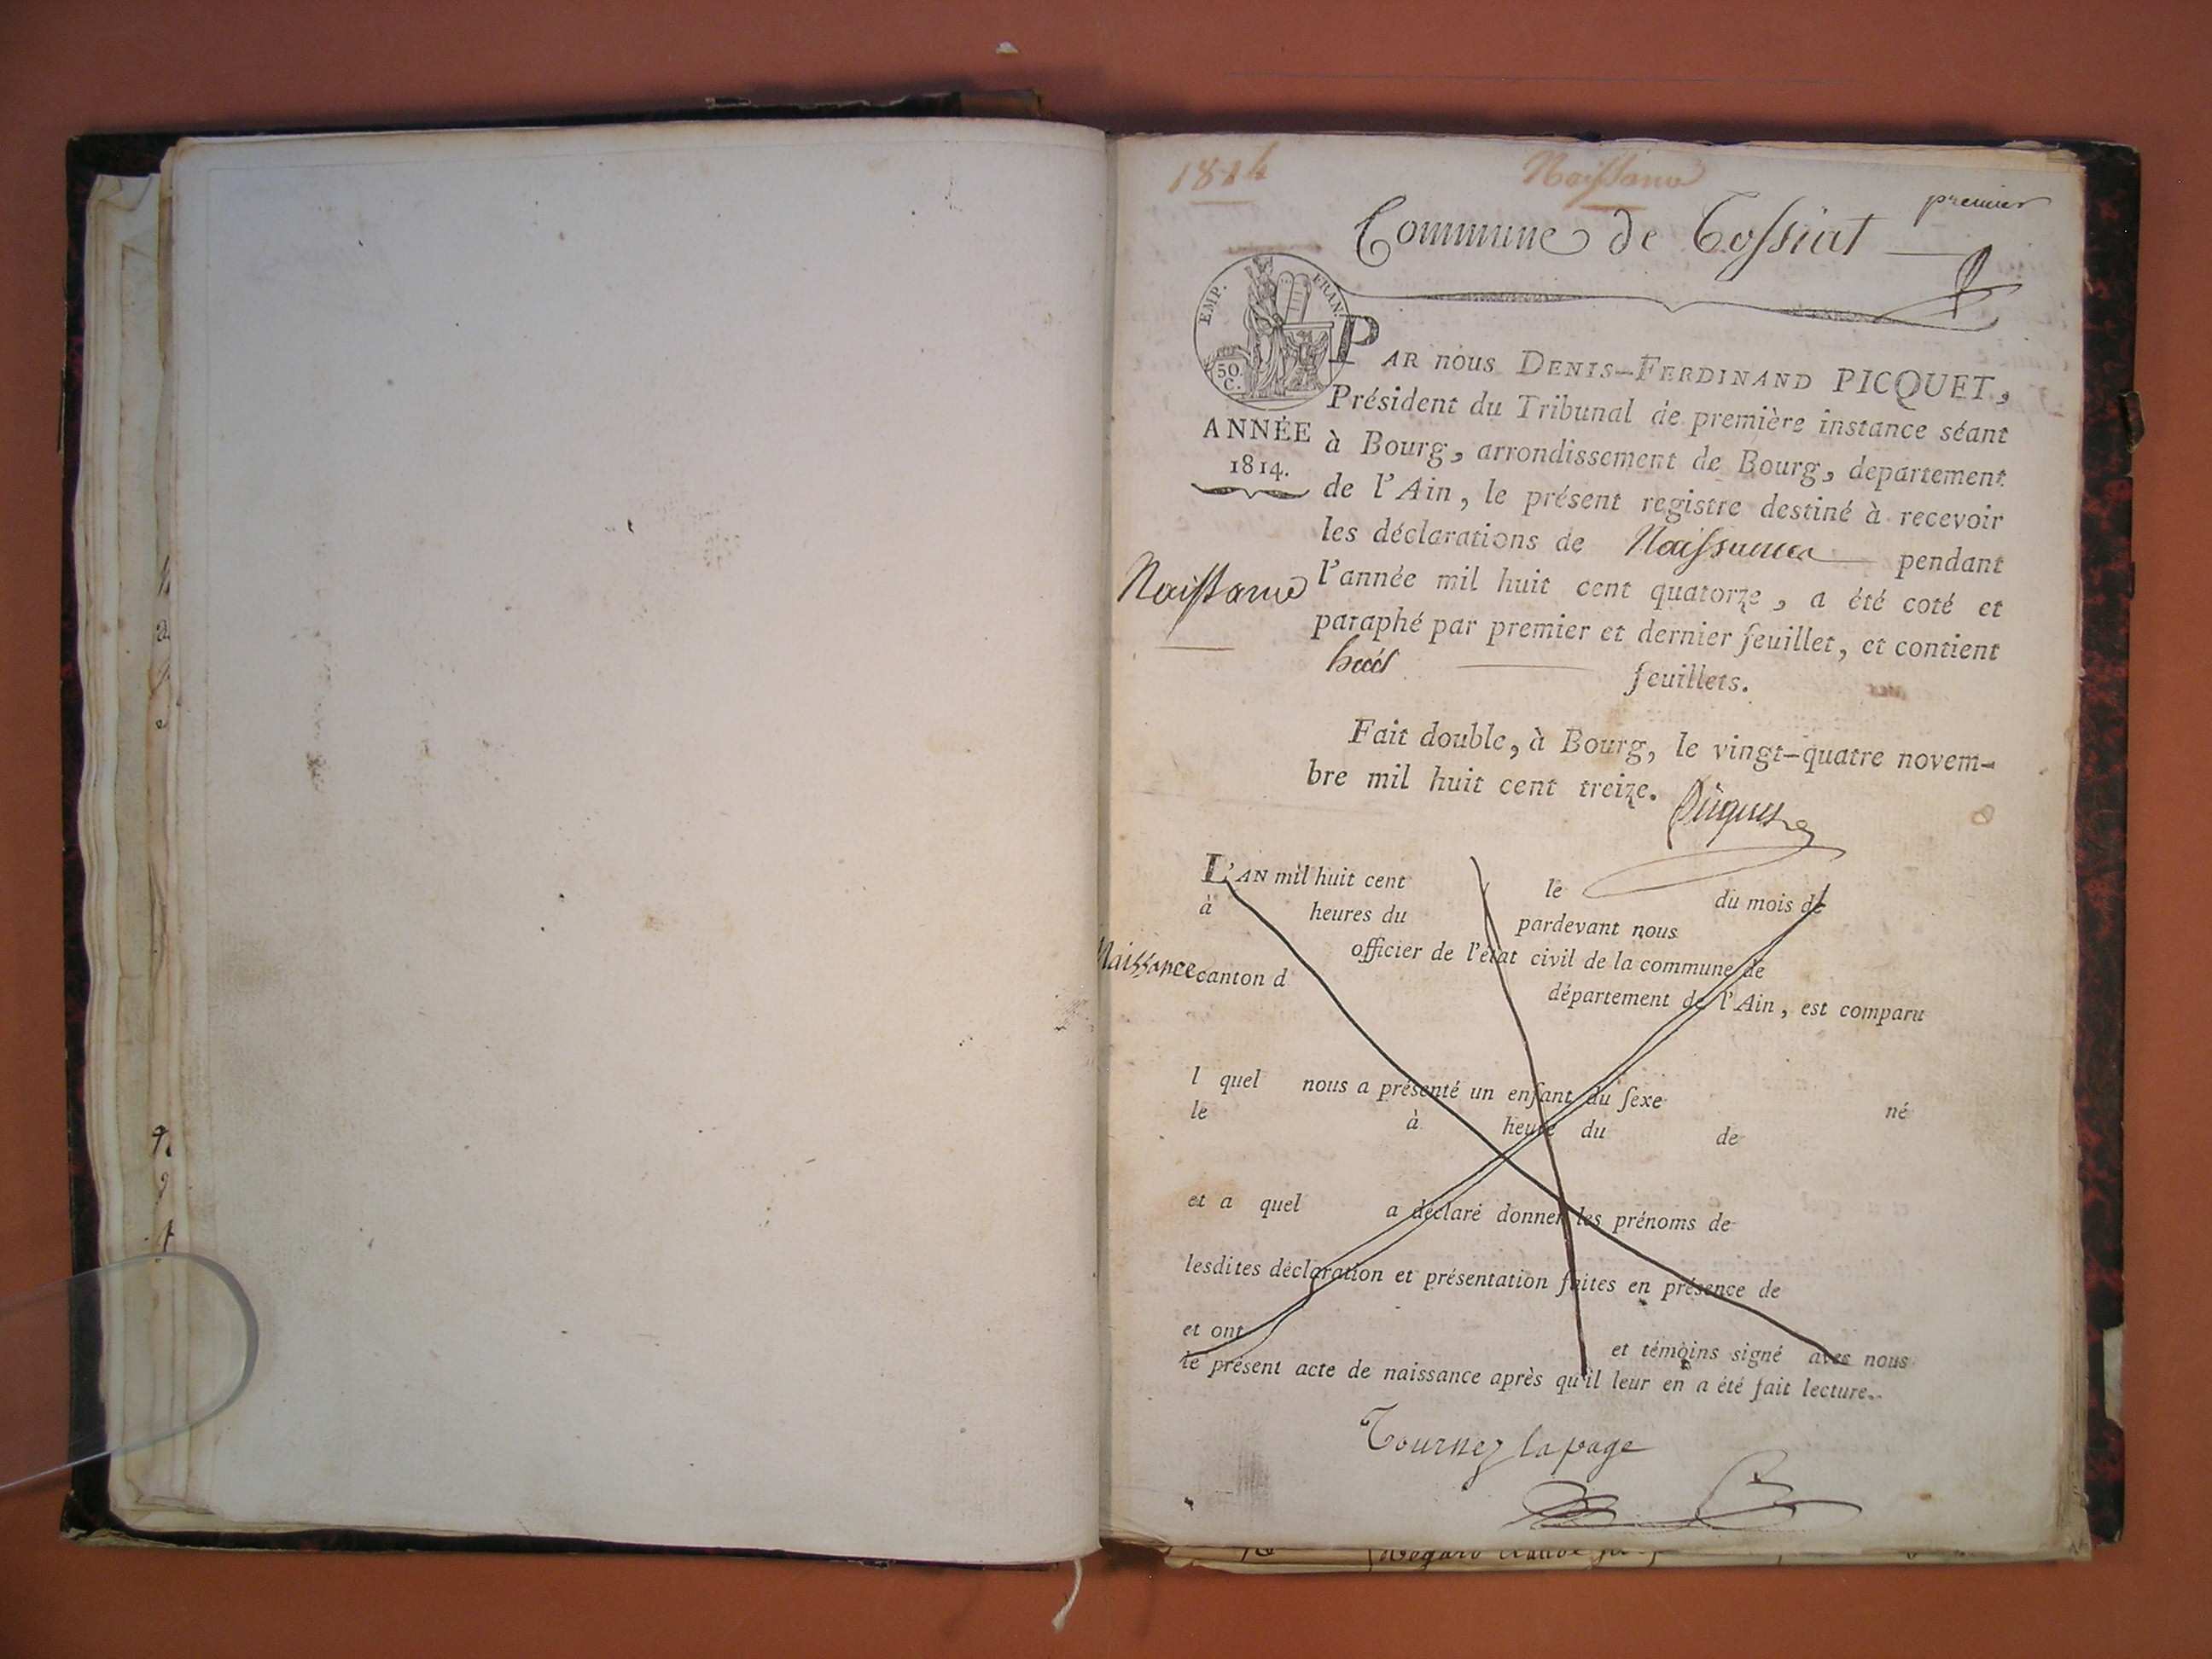 1814
Naissance
premier
Commune de Tossiat
EMP. FRAN.
50.
C.
ANNÉE
1814.
PAR nous DENIS-FERDINAND PICQUET,
Président du Tribunal de première instance séant
à Bourg, arrondissement de Bourg, departement
de l'Ain, le présent registre destiné à recevoir
les déclarations de Naissances pendant
Naissance
l'année mil huit cent quatorze, a été coté et
paraphé par premier et dernier feuillet, et contient
huit feuillets.
Fait double, à Bourg, le vingt-quatre novem-
bre mil huit cent treize.
Picquet
L'AN mil huit cent le du mois de
à heures du pardevant nous
officier de l'état civil de la commune de
Naissance
canton d département de l'Ain, est comparu
l quel nous a présenté un enfant du sexe né
le à heure du de
et a quel a déclaré donner les prénoms de
lesdites déclaration et présentation faites en présence de
et ont et témoins signé avec nous
le présent acte de naissance après qu'il leur en a été fait lecture.
Tournez la page